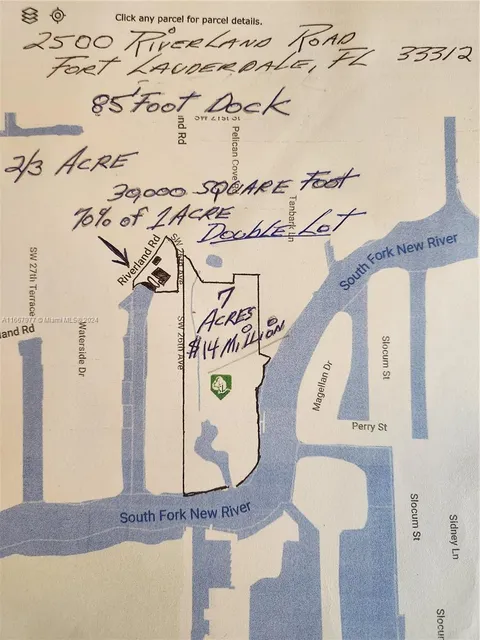 Click any parcel for parcel details.
2500 RIVERLAND ROAD
FORT LAUDERDALE, FL 33312
85' FOOT DOCK
SW 21st St
nd Rd
Pelican Cove
2/3 ACRE
30,000 SQUARE FOOT
70% of 1 ACRE
DOUBLE LOT
Tanbark Ln
Riverland Rd
SW 26th Ave
South Fork New River
SW 27th Terrace
and Rd
Waterside Dr
SW 26th Ave
7
ACRES
$14 MILLION
Slocum St
Magellan Dr
Perry St
South Fork New River
Slocum St
Sidney Ln
Slocu
A11667977 © Miami MLS © 2024